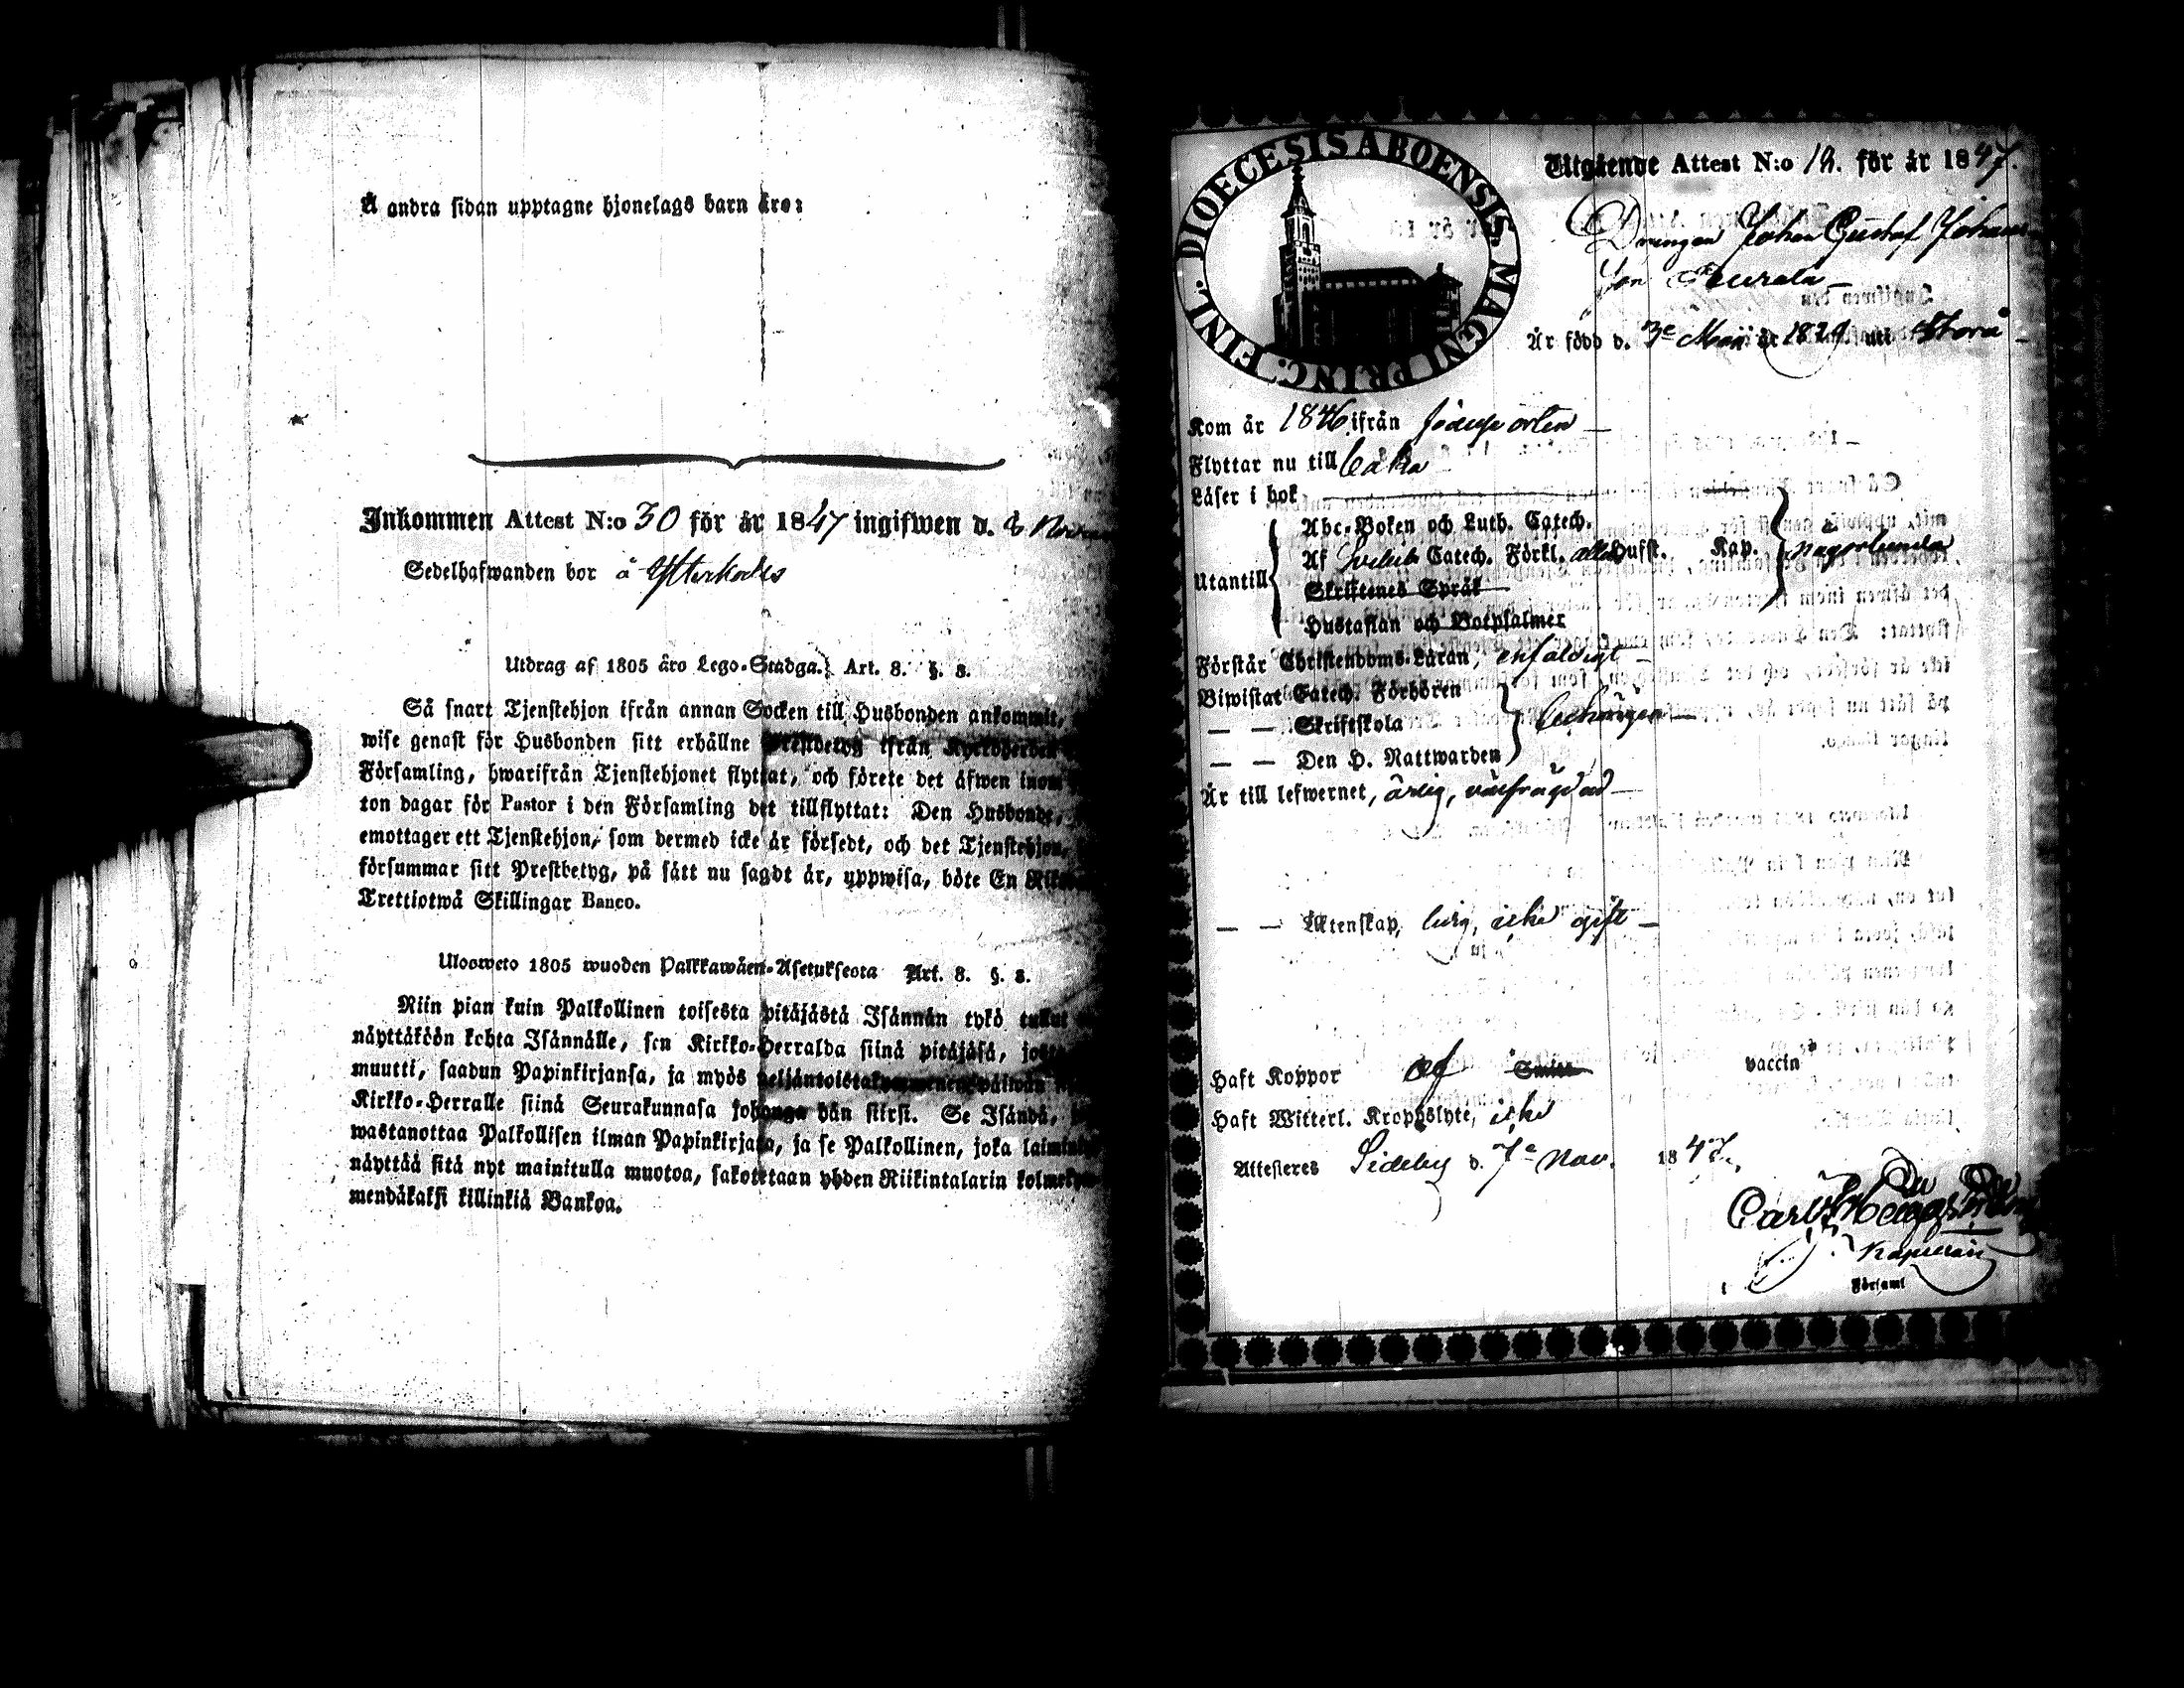 Å andra sidan upptagne hjonelags barn äro:
Inkommen Attest N:o 30 för år 1847 ingifwen d. 8
Sedelhafwanden bor å Ytterkodis
Utdrag af 1805 åro Lego-Stadga. Art. 8. §. 8.
Så snart Tjenstehjon ifrån annan Socken till Husbonden ankommit,
wise genast för Husbonden sitt erhållne Prestbetyg ifrån Kyrkoherden
Församling, hwarifrån Tjenstehjonet flyttat, och förete det äfwen inom
ton dagar för Pastor i den Församling det tillflyttat: Den Husbonde,
emottager ett Tjenstehjon, som dermed icke är försedt, och det Tjenstehjon,
försummar sitt Prestbetyg, på sätt nu sagdt är, uppwisa, böte En
Trettiotwå Skillingar Banco.
Uloosweto 1805 wuoden Palkkawäen-Asetuksesta Art. 8. §. 8.
Niin pian kuin Palkollinen toisesta pitäjästä Isännän tykö tullut
näyttäköön kohta Isännälle, sen Kirkko-Herralda siinä pitäjäsä, josta
muutti, saadun Papinkirjansa, ja myös neljäntoistakymmenen päiwän
Kirkko-Herralle siinä Seurakunnasa johonga hän siirsi. Se Isändä,
wastanottaa Palkollisen ilman Papinkirjata, ja se Palkollinen, joka
näyttää sitä nyt mainitulla muotoa, sakotetaan yhden Riikintalarin
mendäkaksi killinkiä Bankoa.
DIOECESIS ABOENSIS. MAGNI PRINC. FINL.
Utgående Attest N:o 12. för år 1847.
Drengen Johan Gustaf
Är född d. 3e Maii år 1829 uti Storå
Kom år 1846 ifrån
Flyttar nu till
Läser i bok
Utantill
Abc-Boken och Luth. Catech.
Af Catech. Förkl. alla Hufst. Kap. någorlunda
Skriftenes Språk
Hustaflan och Botpsalmer
Förstår Christendoms-Läran, enfaldigt
Biwistat Catech. Förhören
— — Skriftskola
— — Den H. Nattwarden
Är till lefwernet, ärlig, välfrägdad
— — Ägtenskap, ledig, icke gift
Haft Koppor af Smitt vaccin
Haft Witterl. Kroppslyte, icke
Attesteres Sideby d. 7e Nov. 1847.
Carl
Kapellan
i Församl